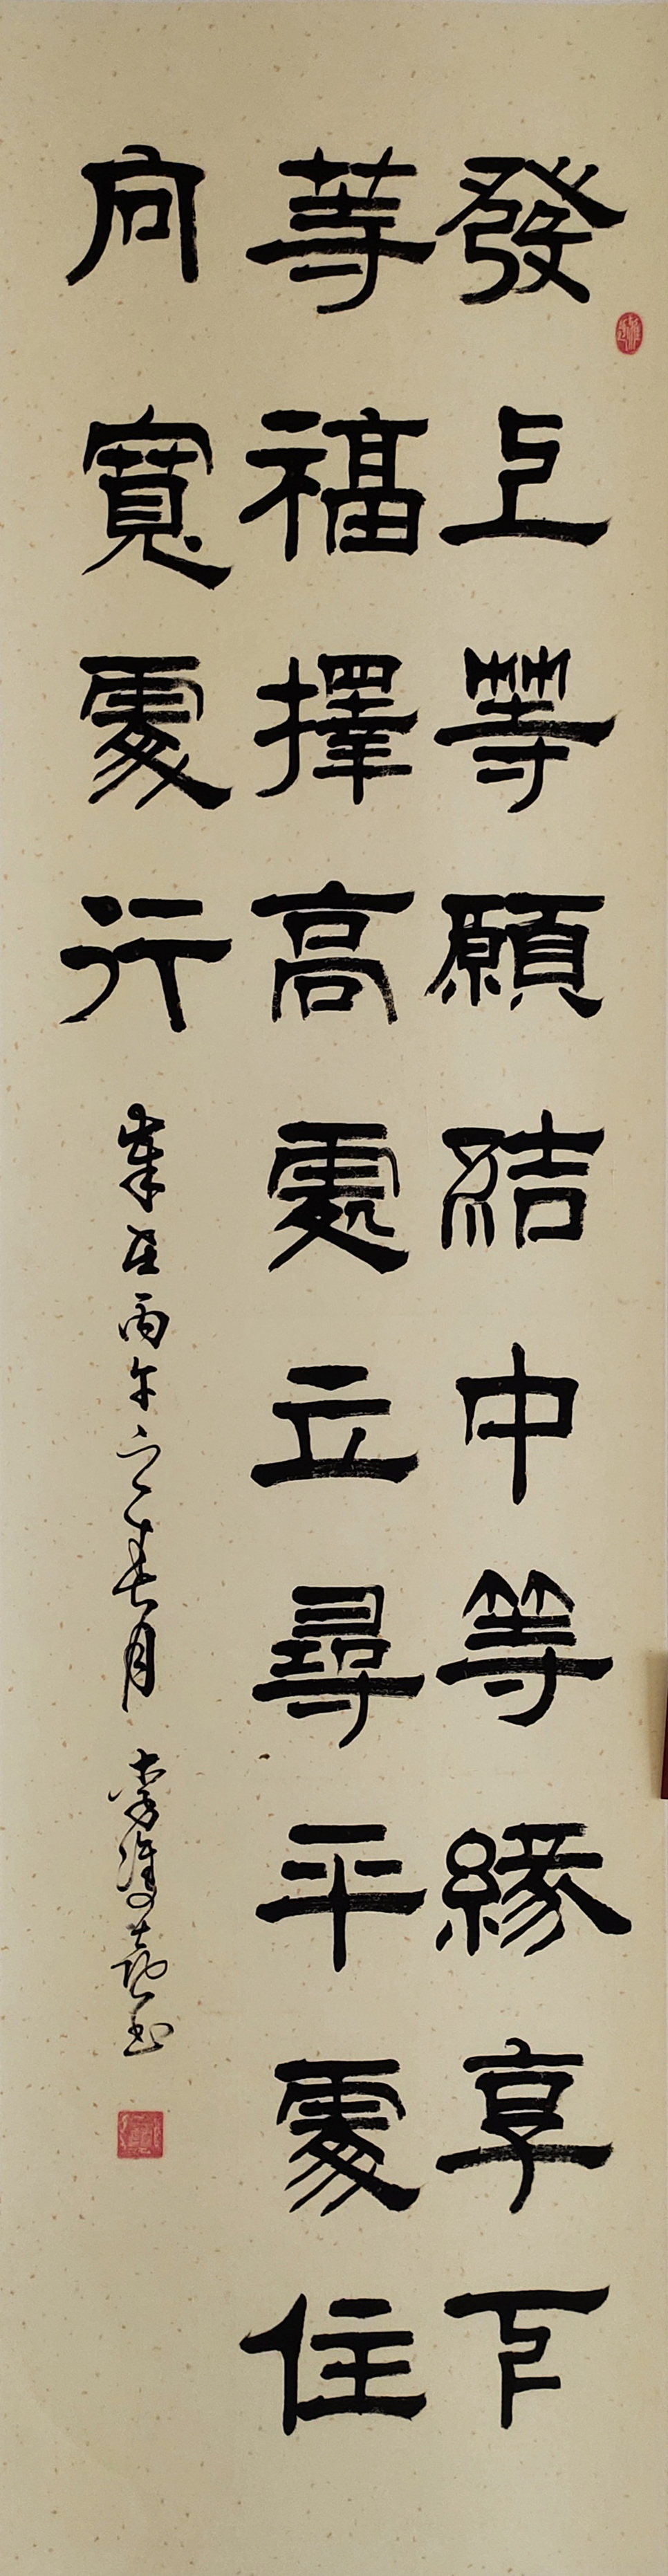 發上等願結中等緣享下
等福擇高處立尋平處住
向寬處行
歲在丙午之春月 李